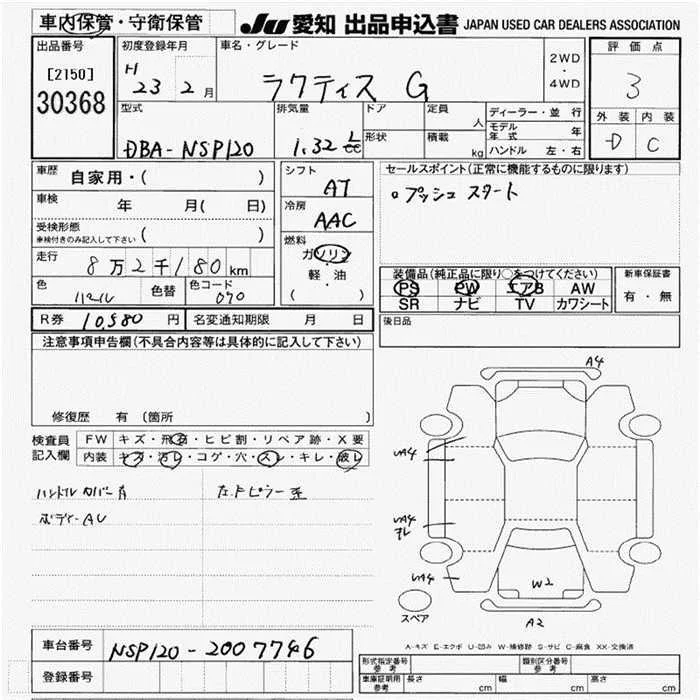 車内保管・守衛保管
JU 愛知 出品申込書 JAPAN USED CAR DEALERS ASSOCIATION
出品番号
[2150]
30368
初度登録年月
H 23 2月
車名・グレード
ラクティス G
2WD
・
4WD
評価点
3
外装 内装
D C
型式
DBA-NSP120
排気量
1.32 L
cc
ドア
形状
定員 人
積載 kg
ディーラー・並行
モデル年式 年
ハンドル 左・右
車歴
自家用・( )
車検 年 月( 日)
受検形態
車検付きのみ記入して下さい ( )
走行 8万2千180km
色 パール 色替 色コード 070
シフト
AT
冷房
AAC
燃料
ガソリン
・
軽・油
( )
セールスポイント(正常に機能するものに限ります)
○プッシュスタート
装備品(純正品に限り○をつけてください)
PS PW エアB AW
SR ナビ TV カワシート
新車保証書
有・無
R券 10,580円 名変通知期限 月 日
後日品
注意事項申告欄(不具合内容等は具体的に記入して下さい)
修復歴 有(箇所 )
検査員
記入欄
FW キズ・飛石・ヒビ割・リペア跡・X要
内装 キズ・汚レ・コゲ・穴・スレ・キレ・破レ
ハンドルカバー有
ボディーAU
左Fピラー歪
A4
UA4
UA4
サビ
UA4
W2
A2
スペア
A-キズ E-エクボ U-凹み W-補修跡 S-サビ C-腐食 XX-交換済
車台番号 NSP120-2007746
登録番号
形式指定番号
参考
類別区分番号
参考
車庫証明用
参考
長さ cm 幅 cm 高さ cm